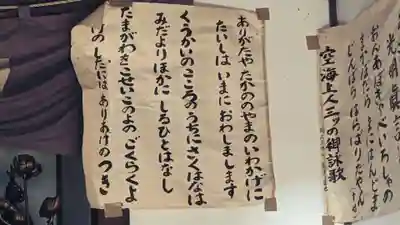 光明真言
おんあぼきゃべいろしゃの
まかぼだらまにはんどま
じんばらはらばりたやうん
空海上人三ツの御詠歌
ありがたやたかののやまのいわかげに
たいしはいまにおわしまします
くうかいのこころのうちにさくはなは
みだよりほかにしるひとはなし
たまがわきこせいこのよのごくらくよ
のしたにはありあけのつき